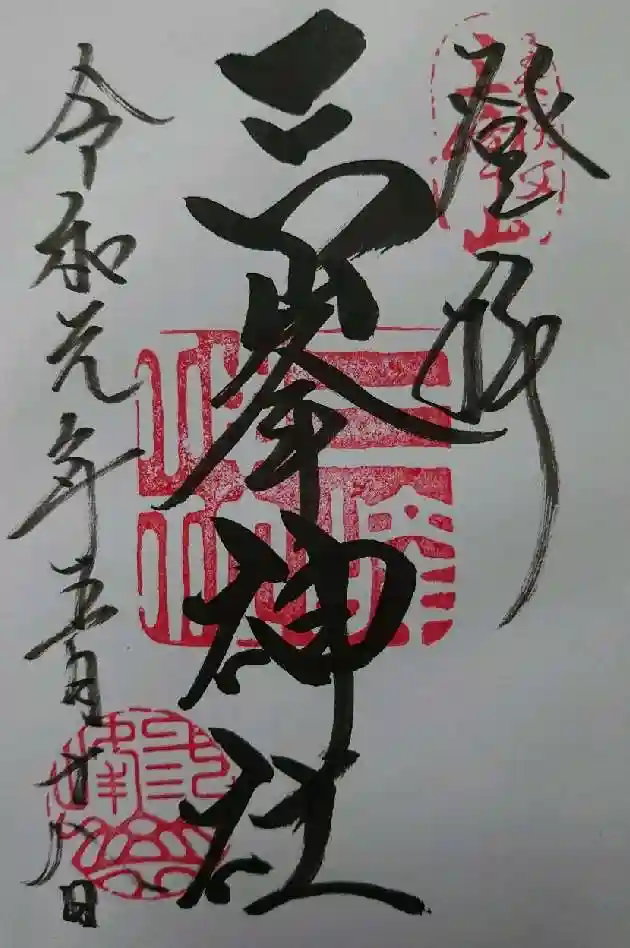 登拝
三峯神社
三峯神社
令和元年五月十八日